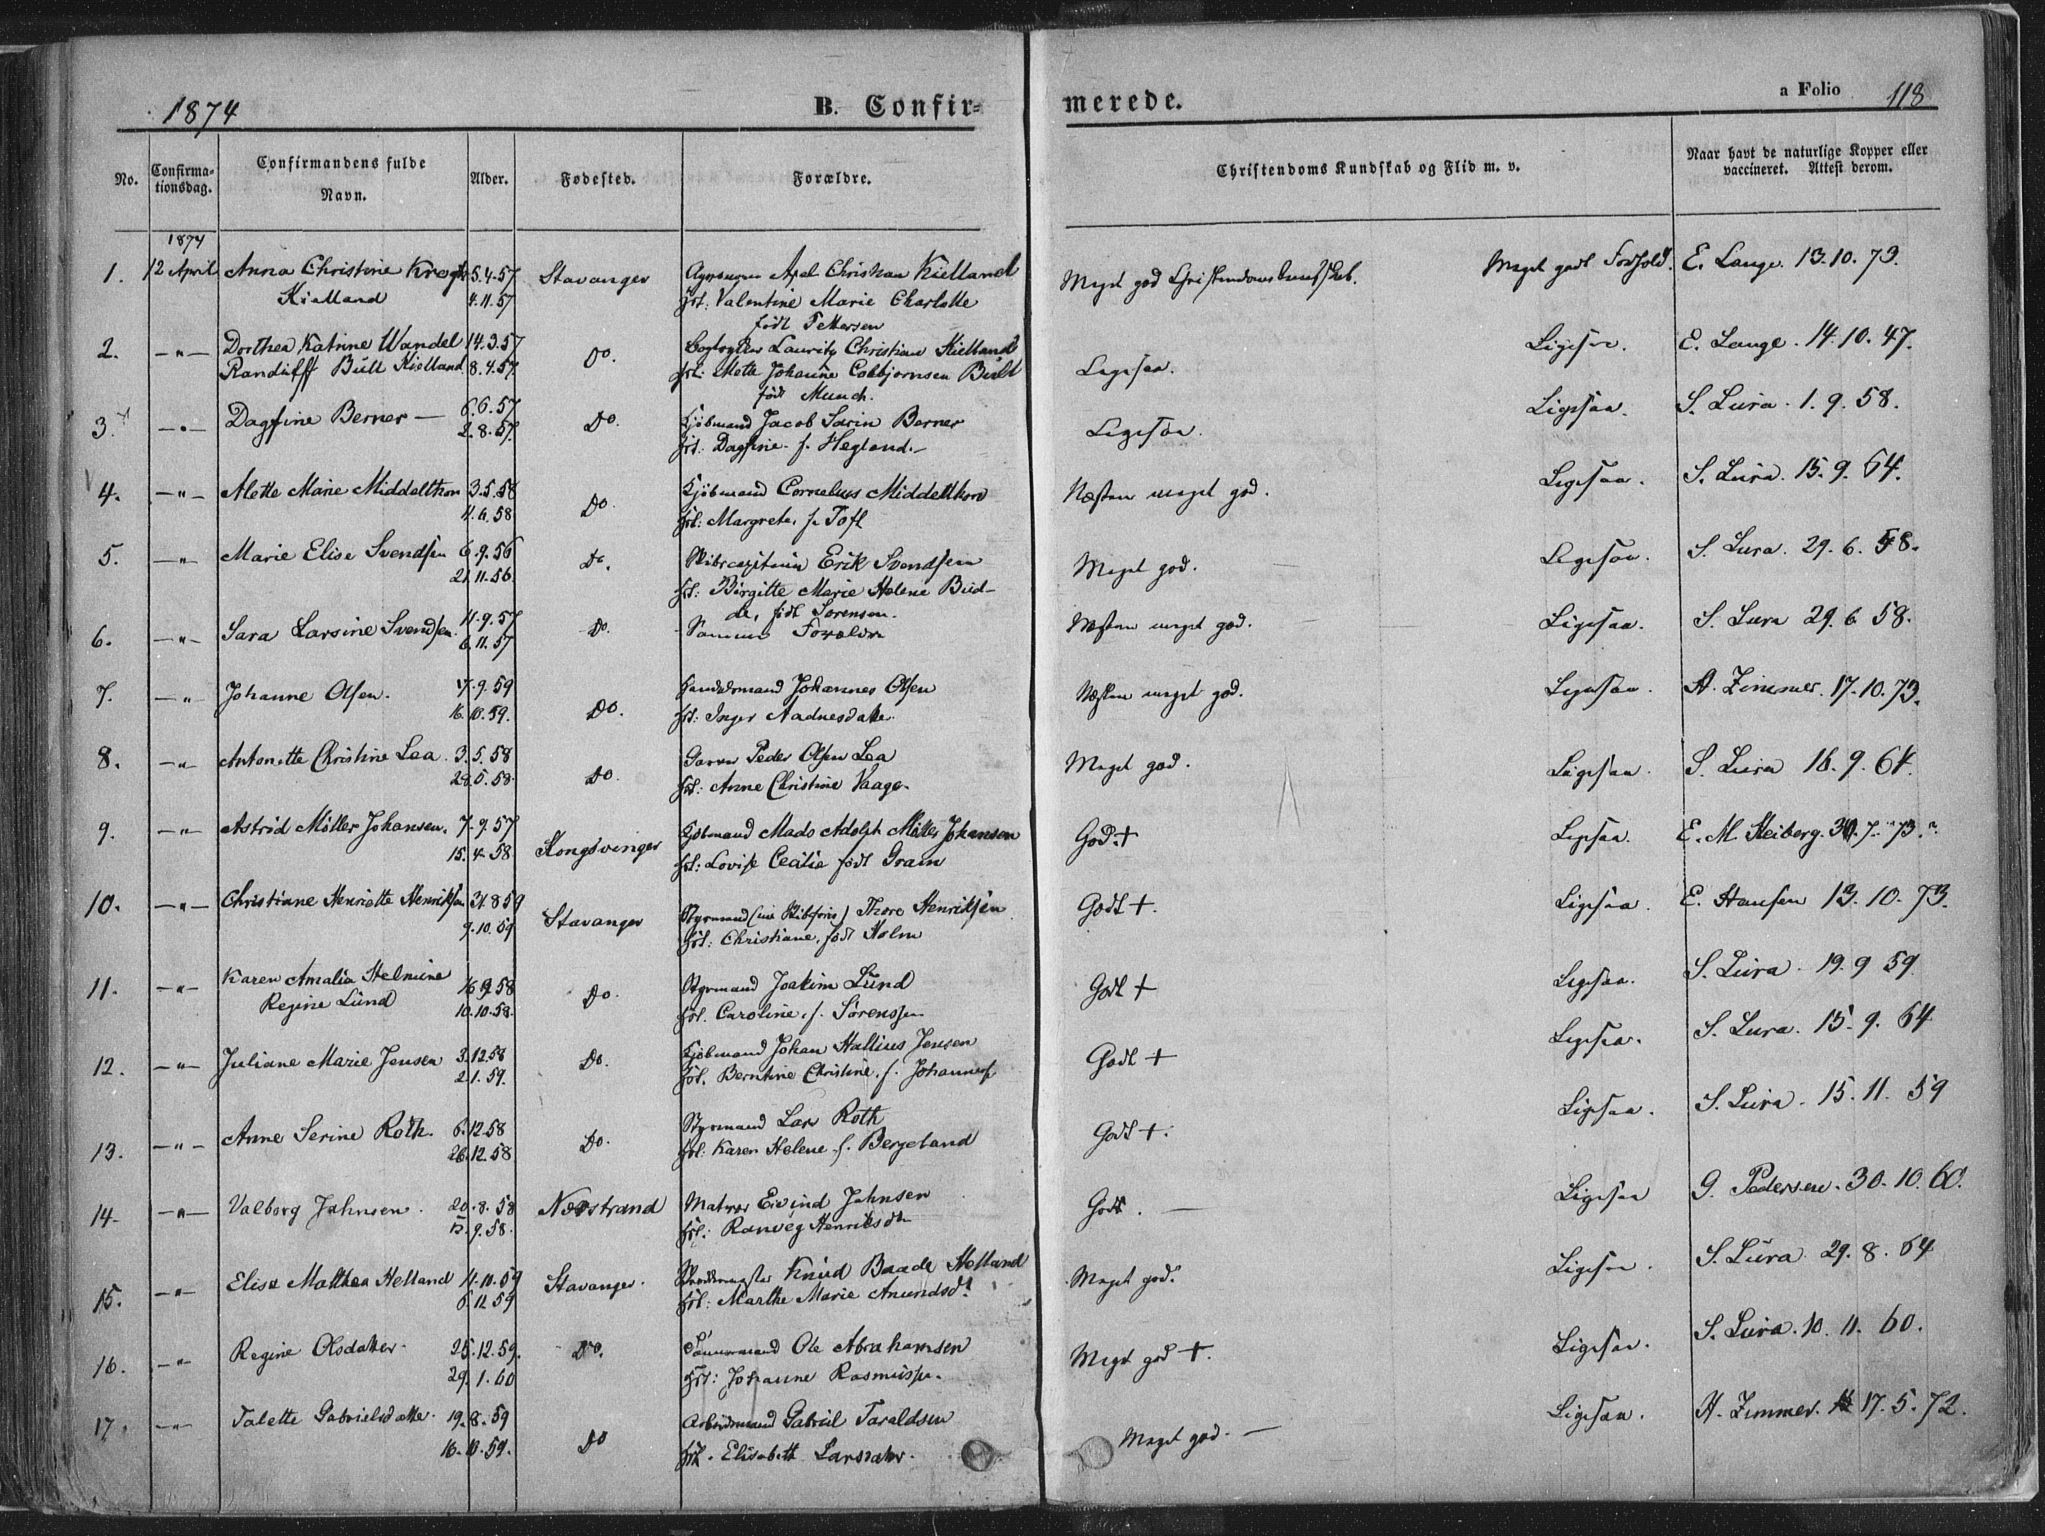 1874
B. Confirmerede.
a Folio 118
No.
Confirmationsdag.
Confirmandens fulde Navn.
Alder.
Fødested.
Forældre.
Christendoms Kundskab og Flid m. v.
Naar havt de naturlige Kopper eller vaccineret. Attest derom.
1874
1. 12 April Anna Christine 5.4.57 Stavanger Axel Christian Kielland Meget god Christendomskundskab. Meget godt Forhold. E. Lange. 13.10.73.
Kielland 4.11.57 Valentine Marie Charlotte
født Pettersen
2. —"— Dorthea Katrine Wandel 14.3.57 Do. Lauritz Christian Kielland Ligesaa. Ligesaa. E. Lange. 14.10.47.
Randulff Bull Kielland 8.4.57 Mette Johanne Colbjørnsen Bull
født Munch.
3. —"— Dagfine Berner — 6.6.57 Do. Kjøbmand Jacob Berner Ligesaa. Ligesaa. S. Lura. 1.9.58.
2.8.57 Dagfine f. Hegland.—
4. —"— Alette Marie Middelthon 3.5.58 Do. Kjøbmand Cornelius Middelthon Næsten meget god. Ligesaa. S. Lura. 15.9.64.
11.6.58 Margrete, f. Toft
5. —"— Marie Elise Svendsen 6.9.56 Do. Skibscapitain Erik Svendsen Meget god. Ligesaa. S. Lura. 29.6.58.
21.11.56 Birgitte Marie Helene Bud-
de, født Sørensen.
6. —"— Sara Larsine Svendsen. 11.9.57 Do. Samme Forældre Næsten meget god. Ligesaa. S. Lura 29.6.58.
6.11.57
7. —"— Johanne Olsen. 17.9.59 Do. Handelsmand Johannes Olsen Næsten meget god. Ligesaa. A. Zimmer. 17.10.73.
16.10.59. Inger Aadnesdatter.
8. —"— Antonette Christine Lea. 3.5.58 Do. Garver Peder Olsen Lea Meget god. Ligesaa. S. Lura 16.9.64.
28.5.58. Anne Christine Vaage.
9. —"— Astrid Møller Johansen. 7.9.57 Kongsvinger Kjøbmand Mads Adolph Møller Johansen God + Ligesaa. E. M. Heiberg.
15.4.58 Lovise Cecilie født Gram
10. —"— Christiane Henriette Henriksen 31.8.59 Stavanger Styrmand Thore Henriksen Godt +. Ligesaa. E. Hansen 13.10.73.
9.10.59 Christiane, født Holm
11. —"— Karen Amalia Helmine 16.9.58 Do. Styrmand Joakim Lund Godt + Ligesaa. S. Lura. 19.9.59.
Regine Lund 10.10.58. Caroline, f. Sørenssen
12. —"— Juliane Marie Jensen 3.12.58 Do. Kjøbmand Johan Jensen Godt + Ligesaa. S. Lura. 15.9.64
2.1.59. Berntine Christine, f. Johannes
13. —"— Anne Serine Roth. 6.12.58 Do. Styrmand Lars Roth Godt +. Ligesaa. S. Lura. 15.11.59
26.12.58 Karen Helene f. Bergeland
14. —"— Valborg Jahnsen. 20.8.58 Nerstrand Matros Eivind Jahnsen Godt. — Ligesaa G. Pedersen. 30.10.60.
12.9.58. Ranveg Henriksdtr
15. —"— Elise Mathea Helland 11.10.59 Stavanger. Knud Baade Helland Meget god. Ligesaa. S. Lura. 29.8.64
6.12.59 Marthe Marie Amundsdtr
16. —"— Regine Olsdatter. 25.12.59. Do. Tømmermand Ole Abrahamsen Meget god +. Ligesaa. S. Lura. 10.11.60.
29.1.60 Johanne Rasmussen.
17. —"— Talette Gabrielsdatter. 19.8.59 Do Arbeidsmand Gabriel Taraldsen Meget god. — Ligesaa. A. Zimmer. 17.5.72.
16.10.59. Elisabeth Larsdatter.